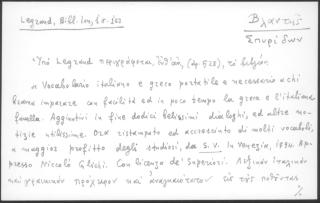 Legrand, Bibl. Ion, 6 σ. 162
Βλαντῆς
Σπυρίδων
Ὑπὸ Legrand περιγράφεται, (4. 528), τὸ
« Vocabolario italiano e greco portatile e necessario a chi
brama imparare con facilità ed in poco tempo la greca e l'italiana
favella. Aggiuntovi in fine dodici bellissimi dialoghi, ed altre no-
tizie utilissime. Ora ristampato ed accresciuto di molti vocaboli,
a maggior profitto degli studiosi, da S. V. in Venezia, Ap-
presso Niccolò Glichì. Con licenza de' Superiori. Λεξικὸν ἰταλικὸν
καὶ γραικικὸν πρόχειρον καὶ ἀναγκαιότατον εἰς τοὺς ποθοῦντας